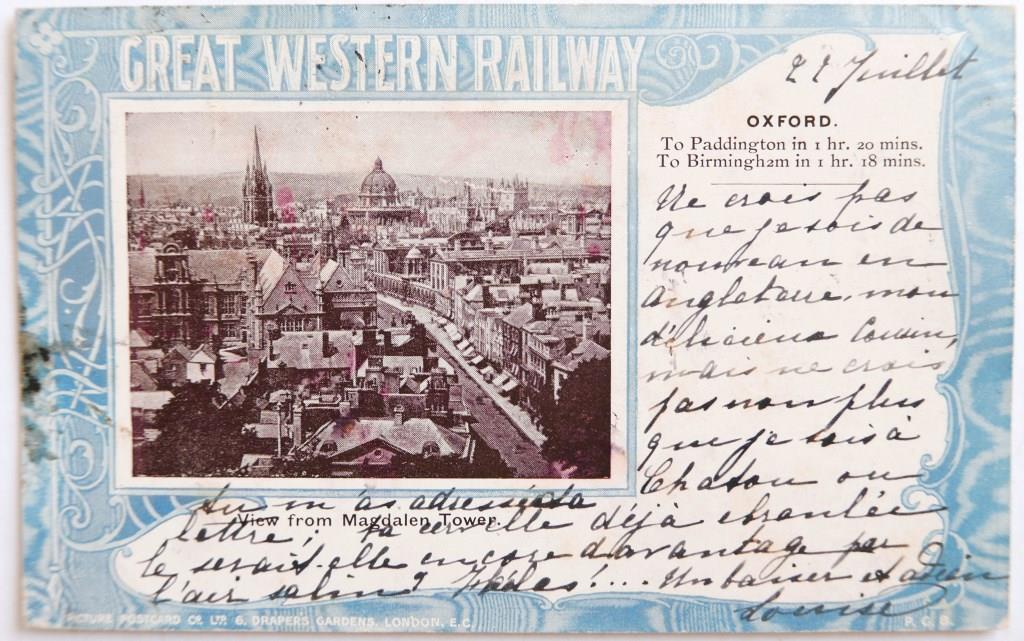 GREAT WESTERN RAILWAY
22 Juillet
OXFORD.
To Paddington in 1 hr. 20 mins.
To Birmingham in 1 hr. 18 mins.
Ne crois pas
que je sois de
nouveau en
angleterre, mon
délicieux Cousin,
mais ne crois
pas non plus
que je sois à
Chatou ou
tu m'as adressé ta
View from Magdalen Tower.
lettre; ta cervelle déjà ébranlée
le serait-elle encore davantage par
l'air salin? Hélas!... Un baiser et
Louise
PICTURE POSTCARD Co. LTD. 6, DRAPERS GARDENS, LONDON, E.C.
P. C. B.